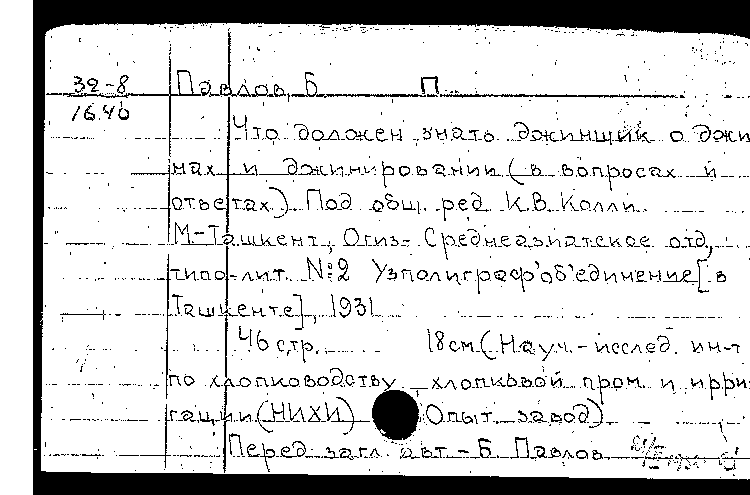 32-8 Павлов, Б П
1640
Что должен знать джинщик о джи
нах и джинировании (в вопросах и
ответах) Под общ. ред К.В. Колли.
М-Ташкент, Огиз- Среднеазиатское отд,
типо-лит. №2 Узполиграф'об'единение [в
Ташкенте], 1931
46 стр. 18см. (Науч.-исслед. ин-т
по хлопководству хлопковой пром. и ирри
гации (НИХИ) Опыт. завод)
Перед загл. авт - Б. Павлов